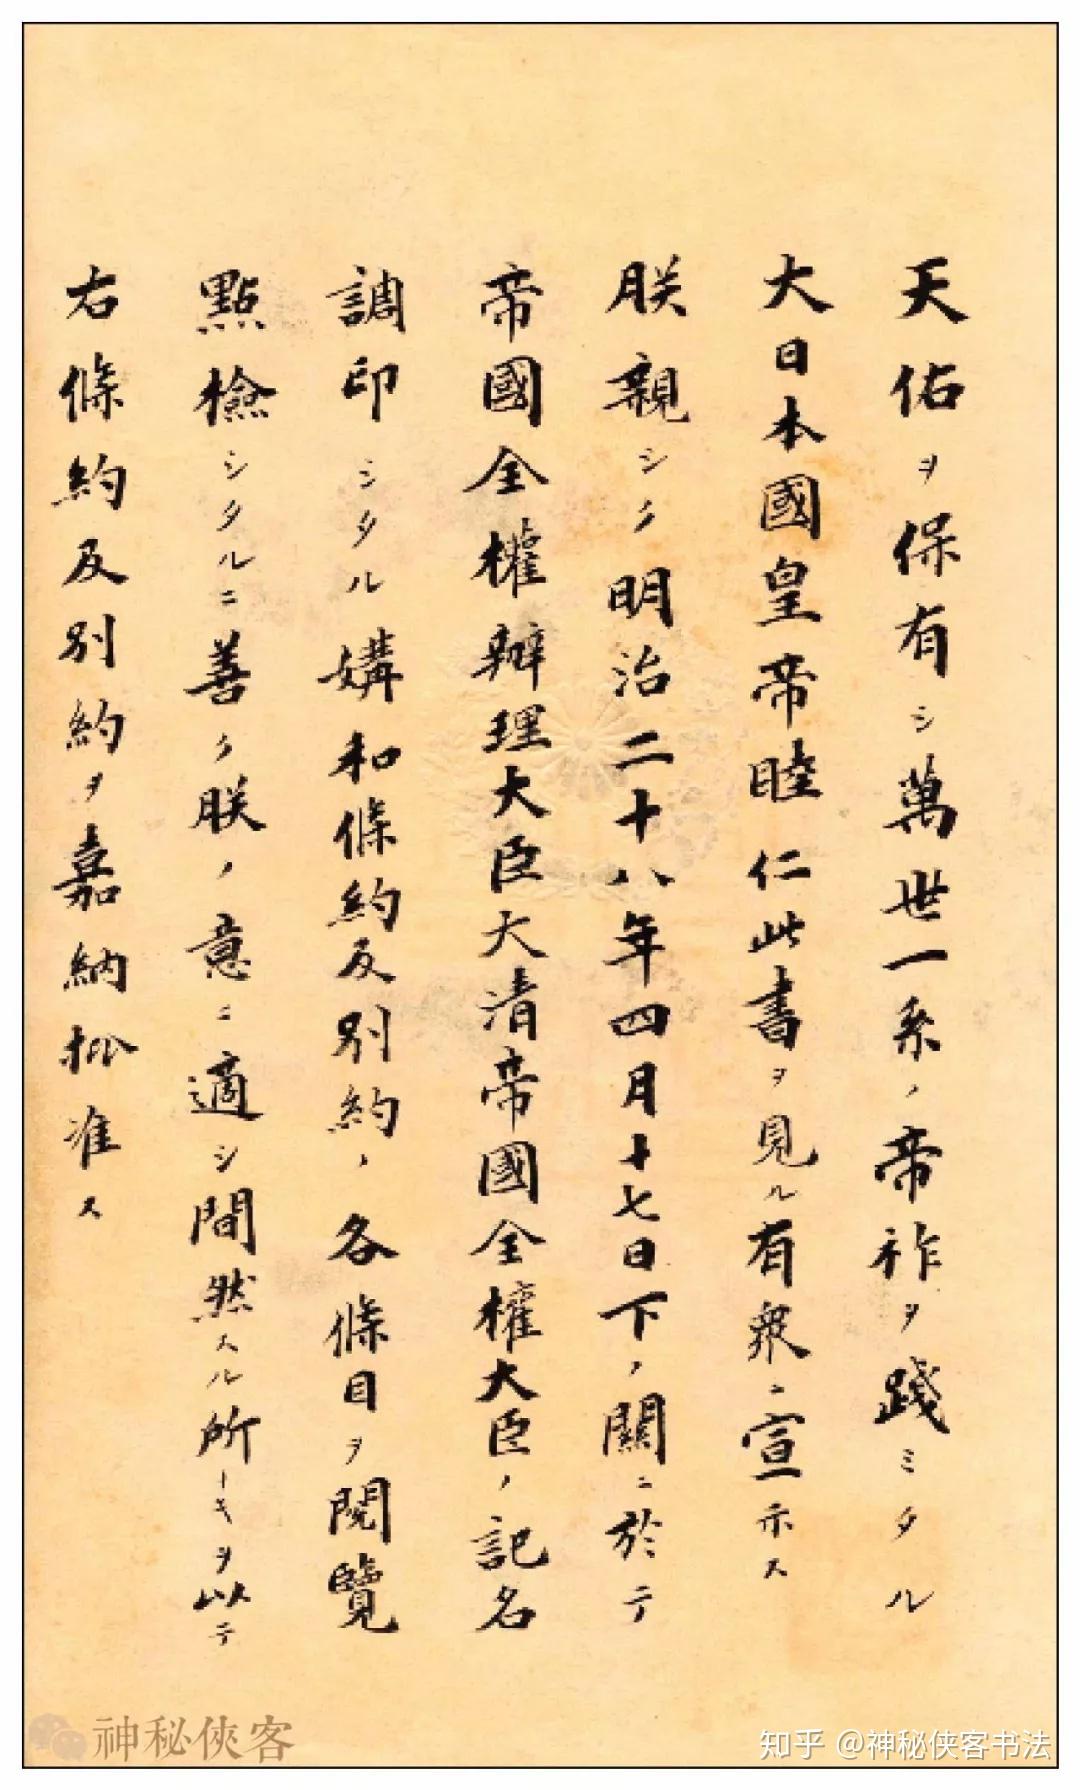 天佑ヲ保有シ萬世一系ノ帝祚ヲ踐ミタル
大日本國皇帝睦仁此書ヲ見ル有衆ニ宣示ス
朕親シク明治二十八年四月十七日下ノ關ニ於テ
帝國全權辦理大臣大清帝國全權大臣ノ記名
調印シタル媾和條約及別約ノ各條目ヲ閲覽
點檢シタルニ善ク朕ノ意ニ適シ間然スル所ナキヲ以テ
右條約及別約ヲ嘉納批准ス
神秘俠客
知乎 @神秘侠客书法